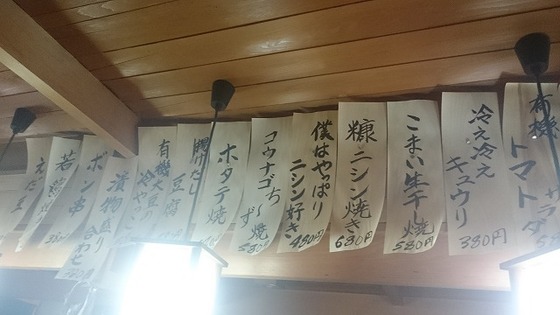 有機
トマト
サラダ
冷え冷え
キュウリ
380円
こまい生干し焼
580円
糠ニシン焼き
680円
僕はやっぱり
ニシン好き
480円
コウナゴち〜ず焼
580円
ホタテ焼
揚げだし
豆腐
有機大豆の
冷やっこ
漬物盛り合わせ
ポン串
若鶏
えだ豆